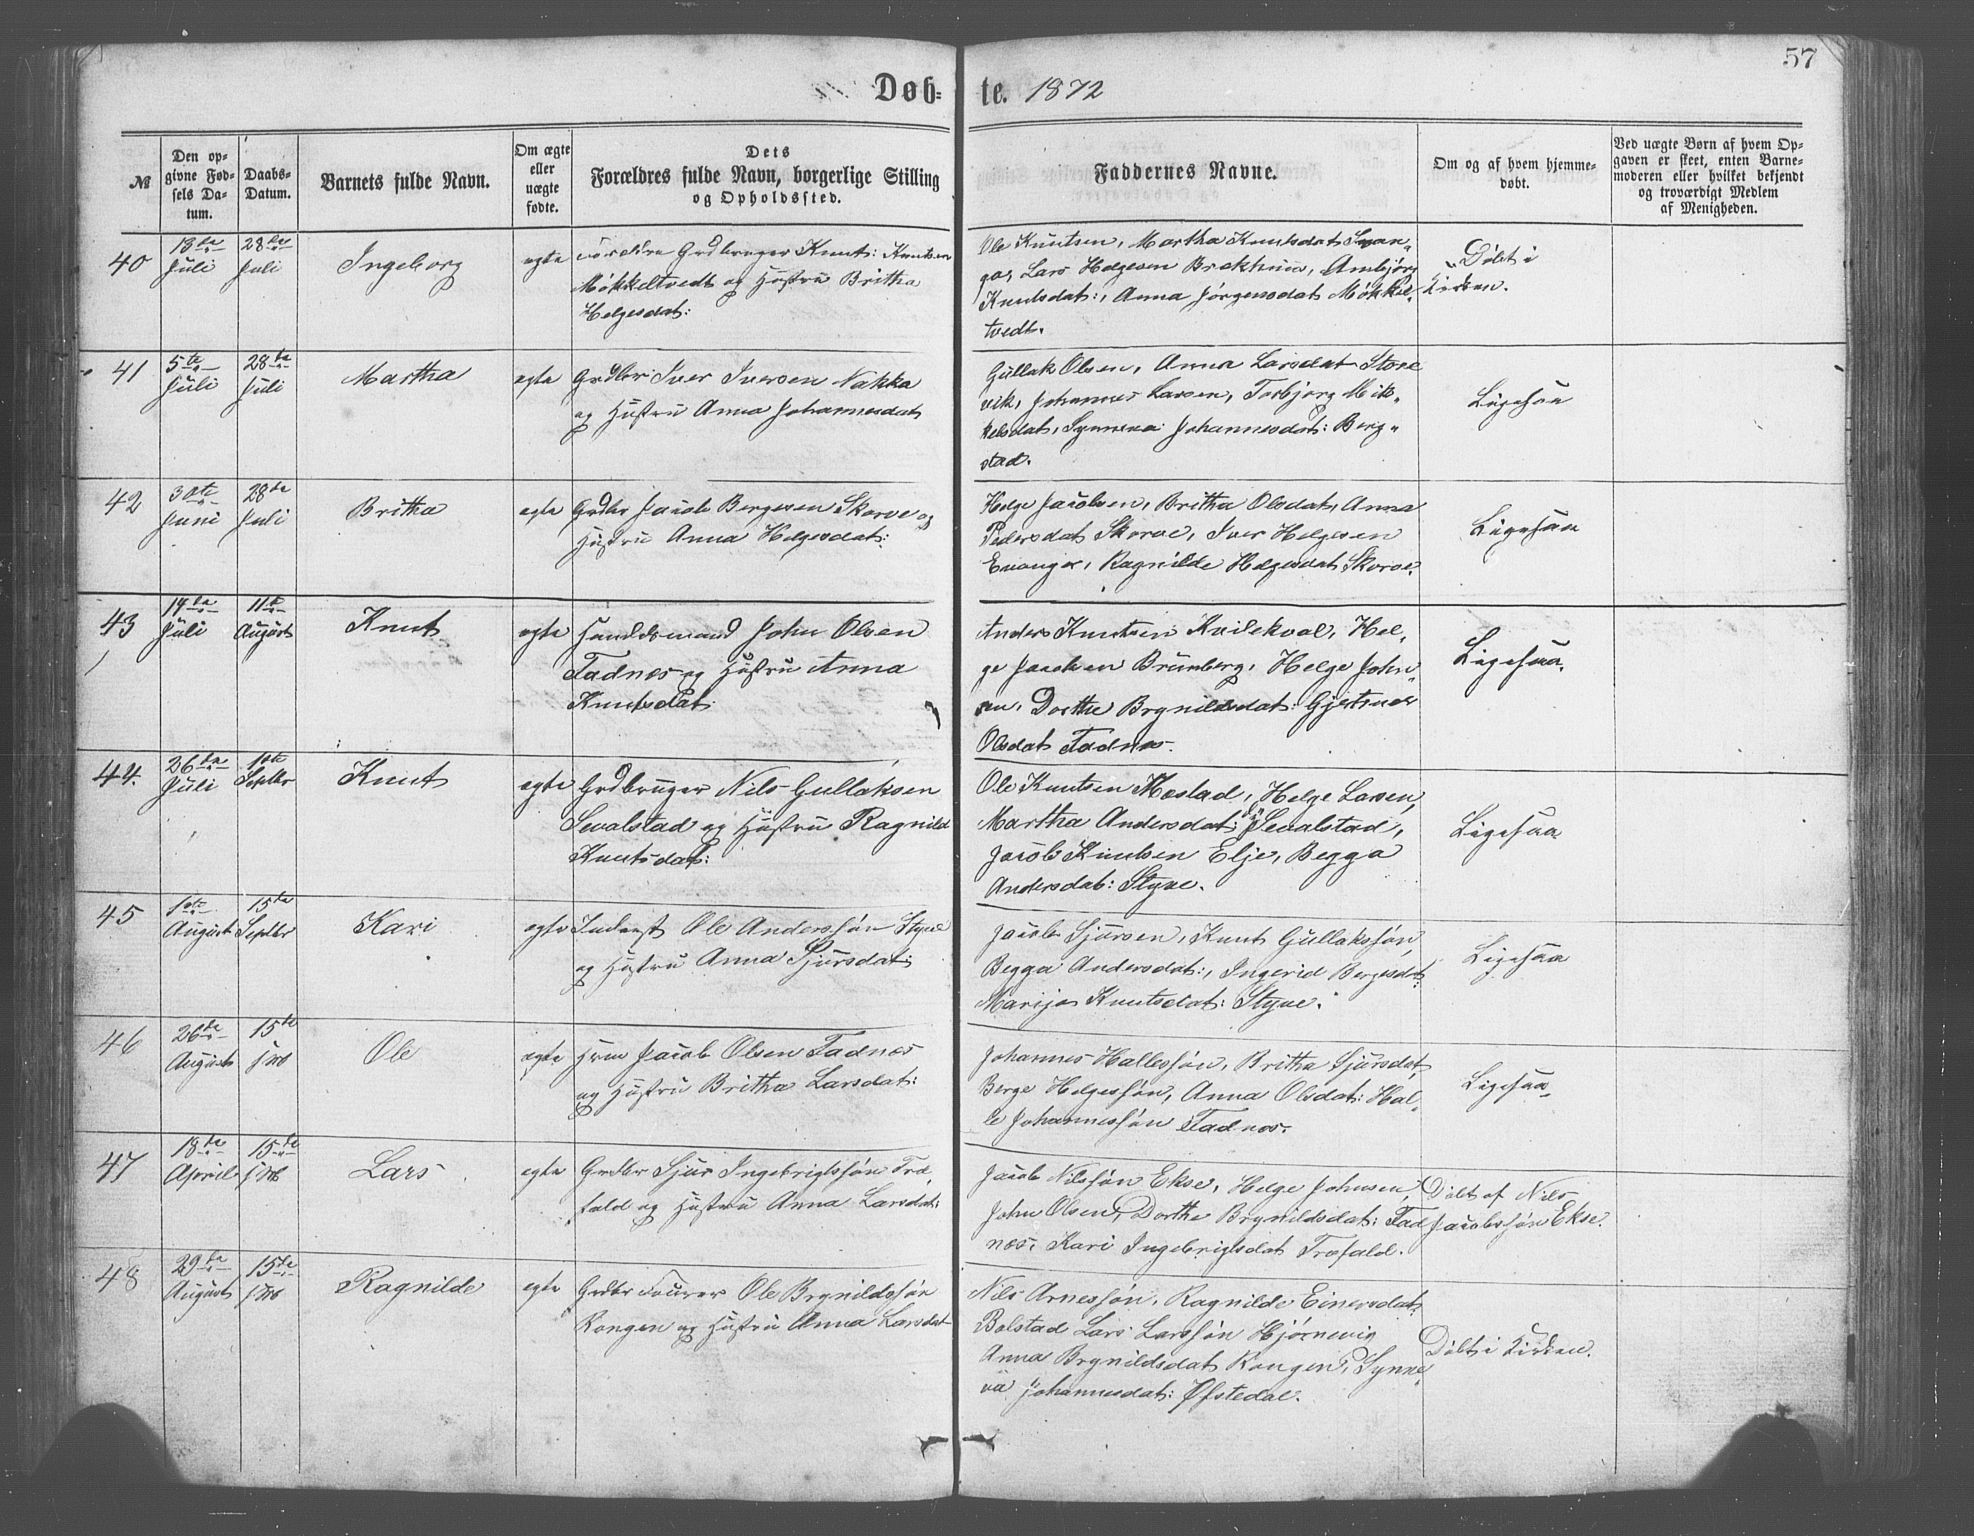 57
Døb= te. 1872
№
Den op=
givne Fød=
sels Da=
tum.
Daabs=
Datum.
Barnets fulde Navn.
Om ægte
eller
uægte
fødte.
Dets
Forældres fulde Navn, borgerlige Stilling
og Opholdssted.
Faddernes Navne.
Om og af hvem hjemme=
døbt.
Ved uægte Børn af hvem Op=
gaven er skeet, enten Barne=
moderen eller hvilket bekjendt
og troværdigt Medlem
af Menigheden.
40
13de
Juli
28de
Juli
Ingeborg
egte
Grdbruger Knut: Knutsen
Møkkeltvedt og Hustru Britha
Helgesdat:
Ole Knutsen, Martha Knutsdat
Lars Helgesen Brekhuus, Ambjørg
Knutsdat:, Anna Jørgensdat Møkkel-
tvedt.
Døbt i
Kirken.
41
5te
Juli
28de
Juli
Martha
egte
Grdbr Iver Iversen Nakka
og Hustru Anna Johannesdat
Gullak Olsen, Anna Larsdat Store
vik, Johannes Larsen, Torbjørg Mik-
kelsdat, Synneva Johannesdat: Berg-
stad.
Ligesaa
42
30te
Juni
28de
Juli
Britha
egte
Grdbr Jacob Bergesen Skorve og
Hustru Anna Helgesdat:
Helge Jacobsen, Britha Olsdat, Anna
Pedersdat Skorve, Iver Helgesen
Evanger, Ragnilde Helgesdat Skorve.
Ligesaa
43
14de
Juli
11te
August
Knut
egte
Huusmand John Olsen
Fadnes og Hustru Anna
Knutsdat
Anders Knutsen Kvilekval, Hel-
ge Jacobsen Brunberg, Helge John-
sen, Dorthe Brynildsdat: Gjertrud
Olsdat Fadnes.
Ligesaa.
44.
26de
Juli
1ste
Septbr
Knut
egte
Grdbruger Nils Gullaksen
Sevalstad og Hustru Ragnild
Knutsdat:
Ole Knutsen Mestad, Helge Larsen,
Martha Andersdat: Sevalstad,
Jacob Knutsen Elje, Begga
Andersdat: Styve.
Ligesaa
45
1ste
August
15de
Septbr
Kari
egte
Inderst Ole Anderssøn Styve
og Hustru Anna Sjursdat:
Jacob Sjursen, Knut Gullakssøn,
Begga Andersdat:, Ingerid Bergesdat:
Marija Knutsdat: Styve.
Ligesaa
46
26de
August
15de
Ole
egte
Jacob Olsen Fadnes
og Hustru Britha Larsdat:
Johannes Hallessøn, Britha Sjursdat,
Berge Helgessøn, Anna Olsdat: Hal-
le Johannessøn Fadnes.
Ligesaa
47
18de
April
15de
Lars
egte
Grdbr Sjur Ingebrigtssøn Træ-
fald og Hustru Anna Larsdat:
Jacob Nilssøn Ekse, Helge Johnsen,
John Olsen, Dorthe Brynildsdat: Fad
nes, Kari Ingebrigtsdat Træfald.
Døbt af Nils
Jacobssøn Ekse.
48
29de
August
15de
Ragnilde
egte
Grdbr Ole Brynildssøn
Rongen og Hustru Anna Larsdat
Nils Arnessøn, Ragnilde Einersdat:
Bolstad Lars Larssøn Hjørnevig
Anna Brynildsdat Rongen, Synne
va Johannesdat: Øfstedal.
Døbt i Kirken.